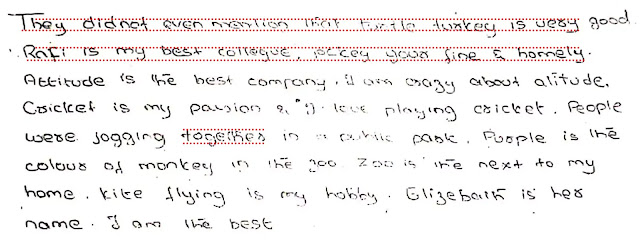 They didnot even mention that turtle turkey is very good.
Rafi is my best collegue, jockey your fine & homely.
Attitude is the best company. I am crazy about alitude.
Cricket is my passion & "I love playing cricket. People
were jogging together in a public park. Purple is the
colour of monkey in the zoo. Zoo is the next to my
home. kite flying is my hobby. Elizebath is her
name. I am the best